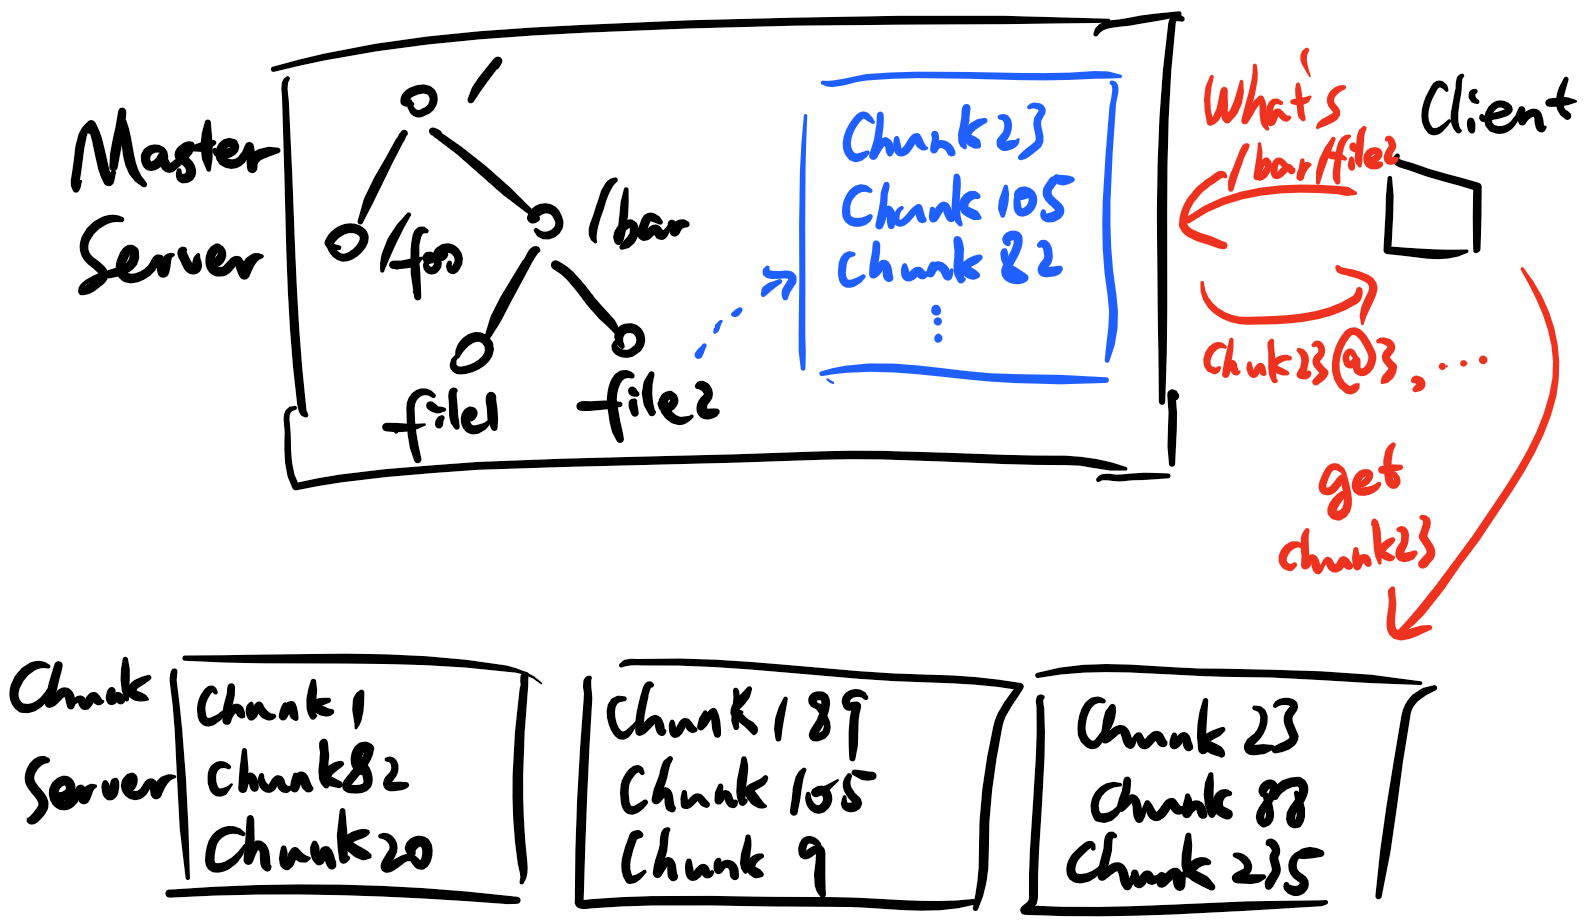 Master
Server
/
/foo
/bar
file1
file2
Chunk 23
Chunk 105
Chunk 82
What's
/bar/file2
Client
Chnk23@3, ....
get
chunk23
Chunk
Server
Chunk 1
Chunk82
Chunk20
Chunk 189
Chunk 105
Chunk 9
Chunk 23
Chunk 88
Chunk 235